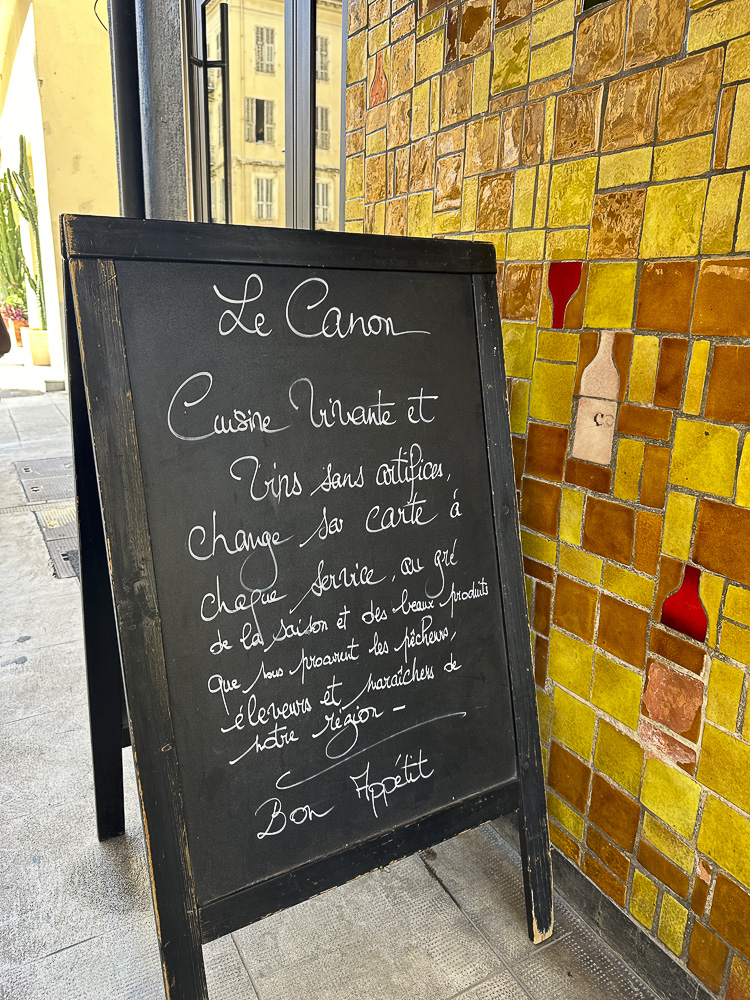 Le Canon
Cuisine Vivante et
Vins sans artifices,
change sa carte à
chaque service, au gré
de la saison et des beaux produits
que nous procurent les pêcheurs,
éleveurs et maraîchers de
notre région -
Bon Appétit